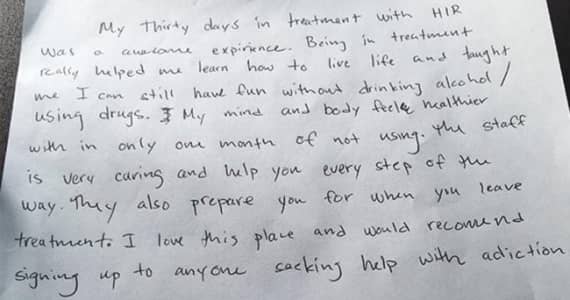 My Thirty days in treatment with HIR
was a awasome expirience. Being in treatment
really helped me learn how to live life and taught
me I can still have fun without drinking alcohol /
using drugs. My mind and body feele healthier
with in only one month of not using. The staff
is very caring and help you every step of the
way. They also prepare you for when you leave
treatment. I love this place and would recomend
signing up to anyone seeking help with adiction